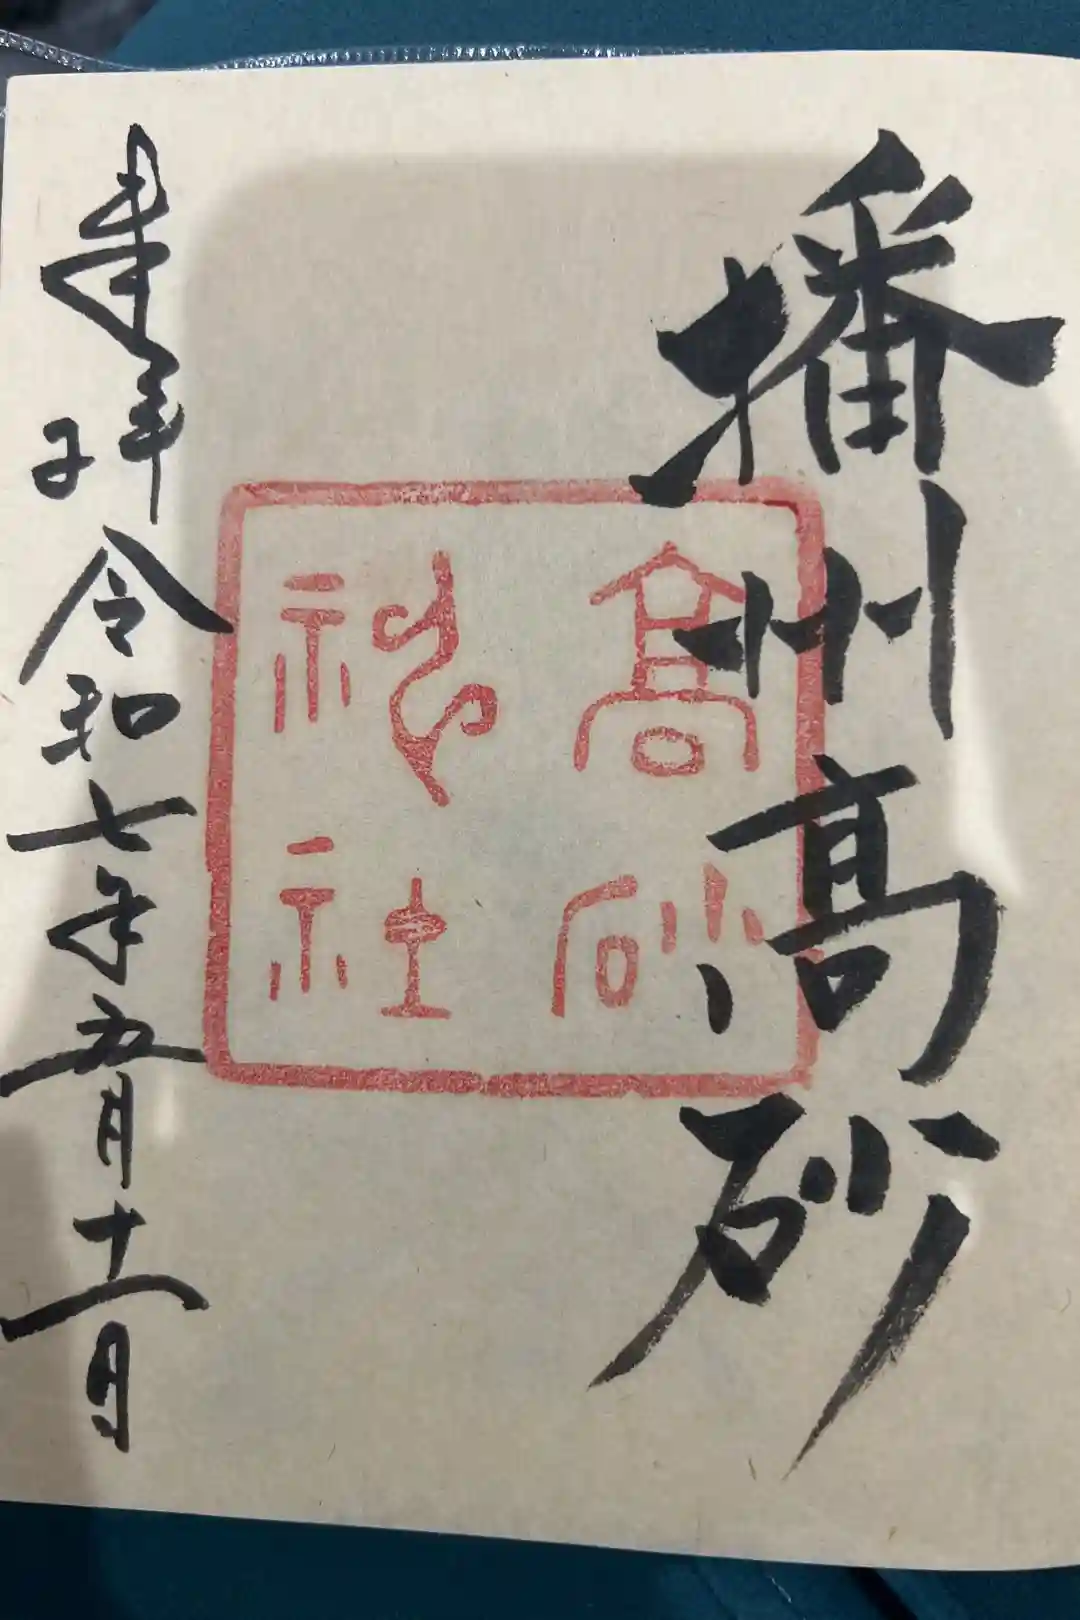 播州高砂
高砂
神社
奉拝
令和七年五月十一日